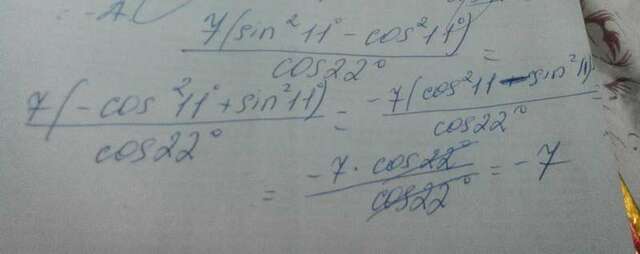 7(sin²11° - cos²11°)/cos22° =
7(-cos²11° + sin²11°)/cos22° = -7(cos²11 - sin²11)/cos22° =
= -7·cos22°/cos22° = -7